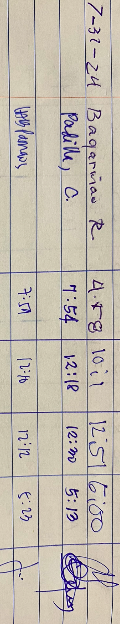 7-31-24 Bagarinao R 4:58 10:11 12:51 6:00
Padilla, C. 7:54 12:18 12:30 5:13
7:51 12:16 12:12 5:23